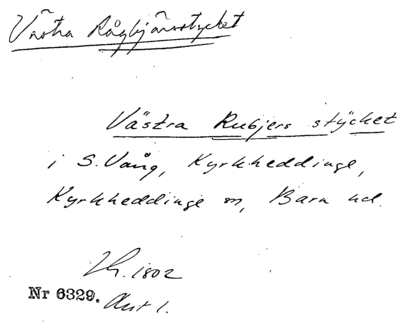 Västra Rågbjärsstycket
Västra Rubjers stÿcket
i S. Vång, Kyrkheddinge,
Kyrkheddinge sn, Bara hd.
1802
Nr 6329. Akt 1.